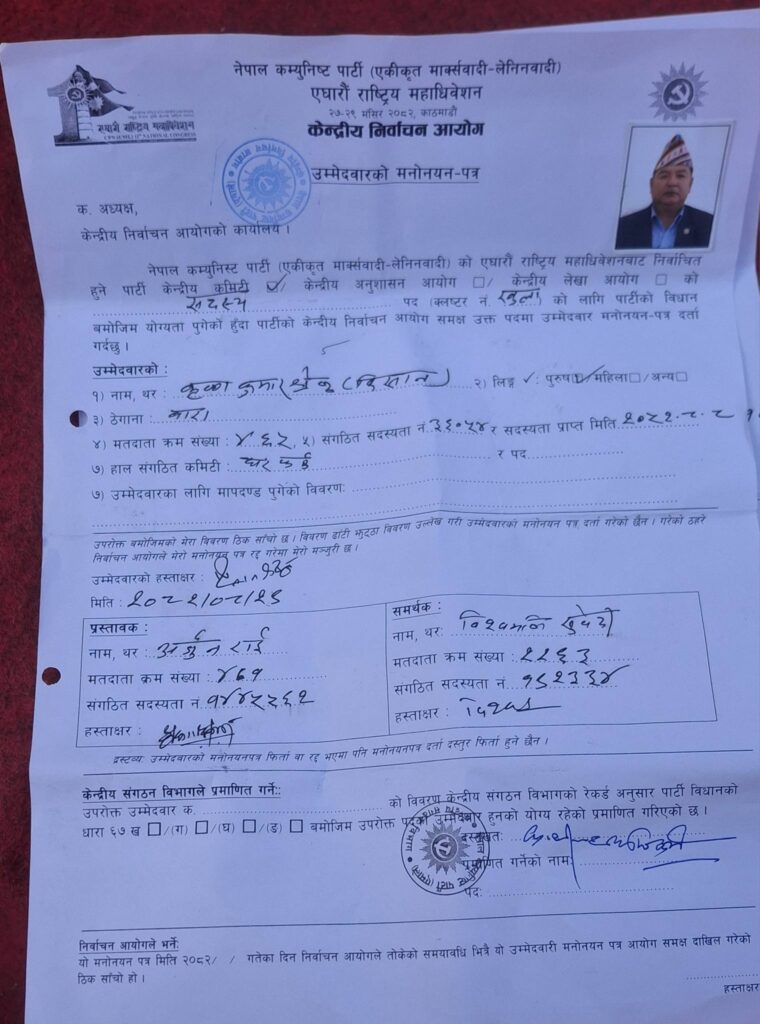 नेपाल कम्युनिष्ट पार्टी (एकीकृत मार्क्सवादी-लेनिनवादी)
एघारौं राष्ट्रिय महाधिवेशन
२७-२९ मंसिर २०८२, काठमाडौं
केन्द्रीय निर्वाचन आयोग
एघारौं राष्ट्रिय महाधिवेशन
उम्मेदवारको मनोनयन-पत्र
क. अध्यक्ष,
केन्द्रीय निर्वाचन आयोगको कार्यालय ।
नेपाल कम्युनिस्ट पार्टी (एकीकृत मार्क्सवादी-लेनिनवादी) को एघारौं राष्ट्रिय महाधिवेशनबाट निर्वाचित
हुने पार्टी केन्द्रीय कमिटी ☑/ केन्द्रीय अनुशासन आयोग □/ केन्द्रीय लेखा आयोग □ को
सदस्य पद (क्लष्टर नं. खुला) को लागि पार्टीको विधान
बमोजिम योग्यता पुगेको हुँदा पार्टीको केन्द्रीय निर्वाचन आयोग समक्ष उक्त पदमा उम्मेदवार मनोनयन-पत्र दर्ता
गर्दछु ।
उम्मेदवारको :
१) नाम, थर : कृष्ण कुमार श्रेष्ठ (किसान) २) लिङ्ग ✓: पुरुष☑ महिला□/अन्य□
३) ठेगाना : बारा
४) मतदाता क्रम संख्या : ४६२, ५) संगठित सदस्यता नं. र सदस्यता प्राप्त मिति
७) हाल संगठित कमिटी : र पद
७) उम्मेदवारका लागि मापदण्ड पुगेको विवरण:
उपरोक्त बमोजिमको मेरा विवरण ठिक साँचो छ । विवरण ढाँटी झुट्ठा विवरण उल्लेख गरी उम्मेदवारको मनोनयन पत्र दर्ता गरेको छैन । गरेको ठहरे
निर्वाचन आयोगले मेरो मनोनयन पत्र रद्द गरेमा मेरो मञ्जुरी छ ।
उम्मेदवारको हस्ताक्षर :
मिति :
प्रस्तावक :
नाम, थर : अर्जुन राई
मतदाता क्रम संख्या : ४६१
संगठित सदस्यता नं.
हस्ताक्षर :
समर्थक :
नाम, थर: विश्वमणि सुवेदी
मतदाता क्रम संख्या : २२६३
संगठित सदस्यता नं.
हस्ताक्षर :
द्रस्टव्यः उम्मेदवारको मनोनयनपत्र फिर्ता वा रद्द भएमा पनि मनोनयनपत्र दर्ता दस्तुर फिर्ता हुने छैन ।
केन्द्रीय संगठन विभागले प्रमाणित गर्नेः:
उपरोक्त उम्मेदवार क. को विवरण केन्द्रीय संगठन विभागको रेकर्ड अनुसार पार्टी विधानको
धारा ६७ ख □/(ग) □/(घ) □/(ङ) □ बमोजिम उपरोक्त पदको उम्मेदवार हुनको योग्य रहेको प्रमाणित गरिएको छ ।
दस्तखत:
प्रमाणित गर्नेको नाम:
पद:
निर्वाचन आयोगले भर्ने:
यो मनोनयन पत्र मिति २०८२/ / गतेका दिन निर्वाचन आयोगले तोकेको समयावधि भित्रै यो उम्मेदवारी मनोनयन पत्र आयोग समक्ष दाखिल गरेको
ठिक साँचो हो ।
हस्ताक्षर